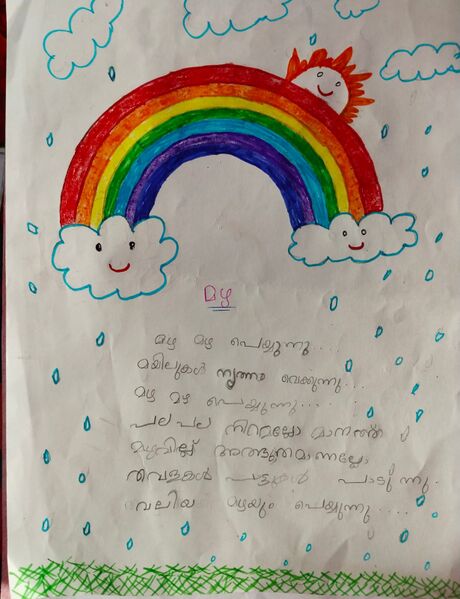 മഴ
മഴ മഴ പെയ്യുന്നു....
മയിലുകൾ നൃത്തം വെക്കുന്നു...
മഴ മഴ പെയ്യുന്നു...
പല പല നിറമല്ലോ മാനത്ത്
മഴവില്ല് അത്ഭുതമാന്നല്ലോ
തവളകൾ പാട്ടുകൾ പാടുന്നു.
വലിയ മഴയും പെയ്യുന്നു....